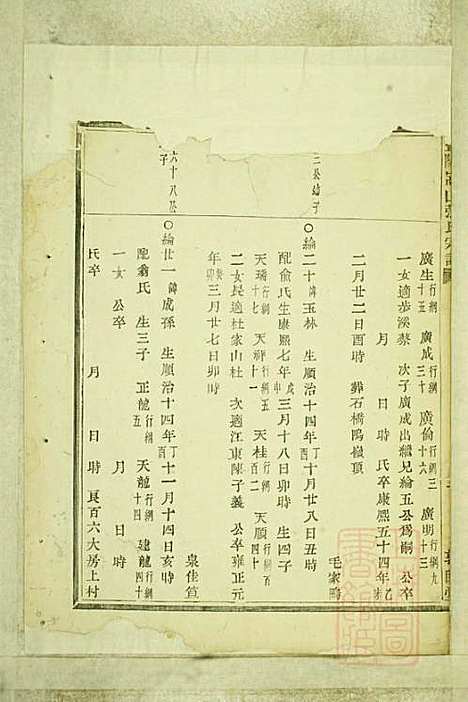 廣生行綱十五 廣成行綱三十 廣倫行綱三十六 廣明行綱九十三
一女適步溪蔡 次子廣成出繼兄綸五公為嗣 公卒
月 日 時 氏卒康熙五十四年乙未
二月廿二日酉時 葬石橋鴎嶺頂
三公幼子
毛家鴎
○綸二十諱玉林 生順治十四年丁十月廿八日丑時
配俞氏生康熙七年戊申三月十八日卯時 生四子
天璘行綱十七 天祥行綱五 天桂行綱百二 天順行綱四十
二女長適杜家山杜 次適江東陳子義 公卒雍正元
年癸卯三月廿七日卯時
六十八公
子
泉佳笪
○綸廿一諱成孫 生順治十四年丁十一月十四日亥時
配翁氏 生三子 正龍行綱五 天龍行綱十四 建龍行綱四十
一女 公卒 月 日 時
氏卒 月 日 時 長百六大房上村